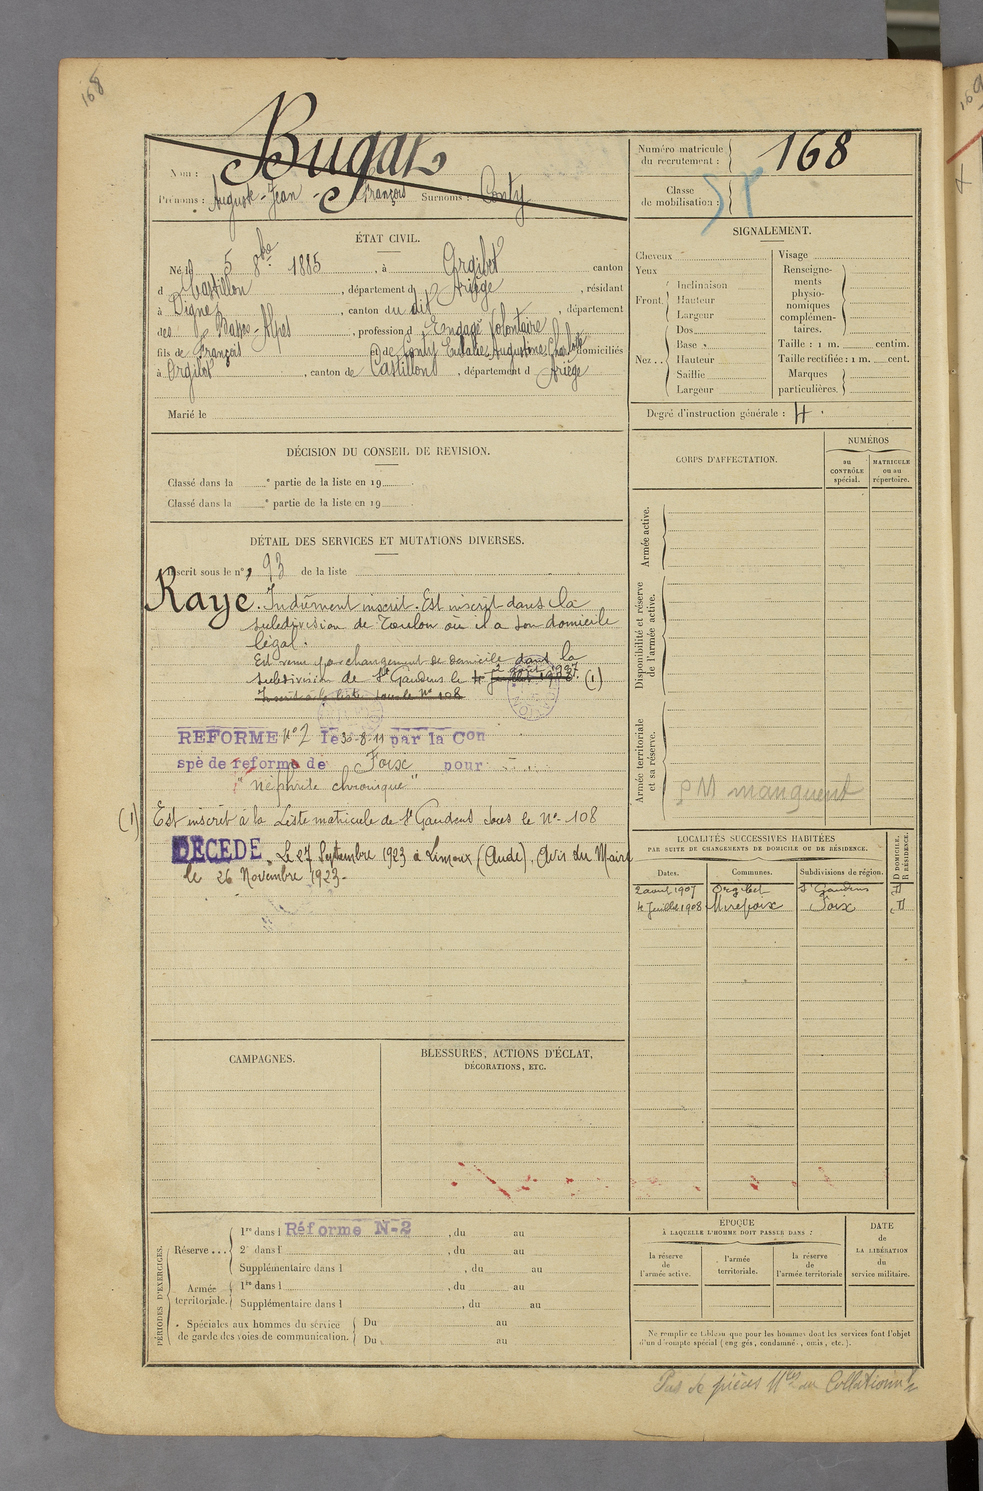 168
Bugat
Nom :
Prénoms : Auguste-Jean-François Surnoms : Conty
Numéro matricule du recrutement : 168
Classe de mobilisation :
ÉTAT CIVIL.
Né le 5 8bre 1885, à Orgibet, canton
d Castillon, département d Ariège, résidant
à Digne, canton du dit, département
des Basses-Alpes, profession d Engagé Volontaire
fils de François et de Conty Eulalie Augustine Charlotte domiciliés
à Orgibet, canton de Castillon, département d Ariège
Marié le
SIGNALEMENT.
Cheveux
Yeux
Front. Inclinaison
Hauteur
Largeur
Nez .. Dos
Base
Hauteur
Saillie
Largeur
Visage
Renseignements physionomiques complémentaires.
Taille : 1 m. centim.
Taille rectifiée : 1 m. cent.
Marques particulières.
Degré d'instruction générale : 4.
DÉCISION DU CONSEIL DE REVISION.
Classé dans la e partie de la liste en 19
Classé dans la e partie de la liste en 19
DÉTAIL DES SERVICES ET MUTATIONS DIVERSES.
Inscrit sous le n° 93 de la liste
Rayé. Indûment inscrit. Est inscrit dans la
subdivision de Toulon où il a son domicile
légal.
Est venu par changement de domicile dans la
2 août 1907
subdivision de St Gaudens le 4 Juillet 1908 (1)
Inscrit à la liste sous le No 108
REFORME No 2 le 30-8-11 par la Con
spè de reforme de Foix pour
"néphrite chronique"
(1) Est inscrit à la Liste matricule de St Gaudens sous le No 108
DECEDE Le 27 Septembre 1923 à Limoux (Aude), Avis du Maire
le 26 Novembre 1923-
CORPS D'AFFECTATION.
NUMÉROS
au CONTRÔLE spécial.
MATRICULE ou au répertoire.
Armée active.
Disponibilité et réserve de l'armée active.
Armée territoriale et sa réserve.
PM manquent
LOCALITÉS SUCCESSIVES HABITÉES
PAR SUITE DE CHANGEMENTS DE DOMICILE OU DE RÉSIDENCE.
D DOMICILE. R RÉSIDENCE.
Dates. Communes. Subdivisions de région.
2 août 1907 Orgibet St Gaudens D
4 Juillet 1908 Mirepoix Foix D
CAMPAGNES.
BLESSURES, ACTIONS D'ÉCLAT,
DÉCORATIONS, ETC.
PÉRIODES D'EXERCICES.
Réserve ... 1re dans l Réforme N-2, du au
2e dans l, du au
Supplémentaire dans l, du au
Armée territoriale. 1re dans l, du au
Supplémentaire dans l, du au
Spéciales aux hommes du service de garde des voies de communication. Du au
Du au
ÉPOQUE
À LAQUELLE L'HOMME DOIT PASSER DANS :
la réserve de l'armée active.
l'armée territoriale.
la réserve de l'armée territoriale
DATE de LA LIBÉRATION du service militaire.
Ne remplir ce tableau que pour les hommes dont les services font l'objet
d'un décompte spécial (engagés, condamné, omis, etc.).
Pas de pièces